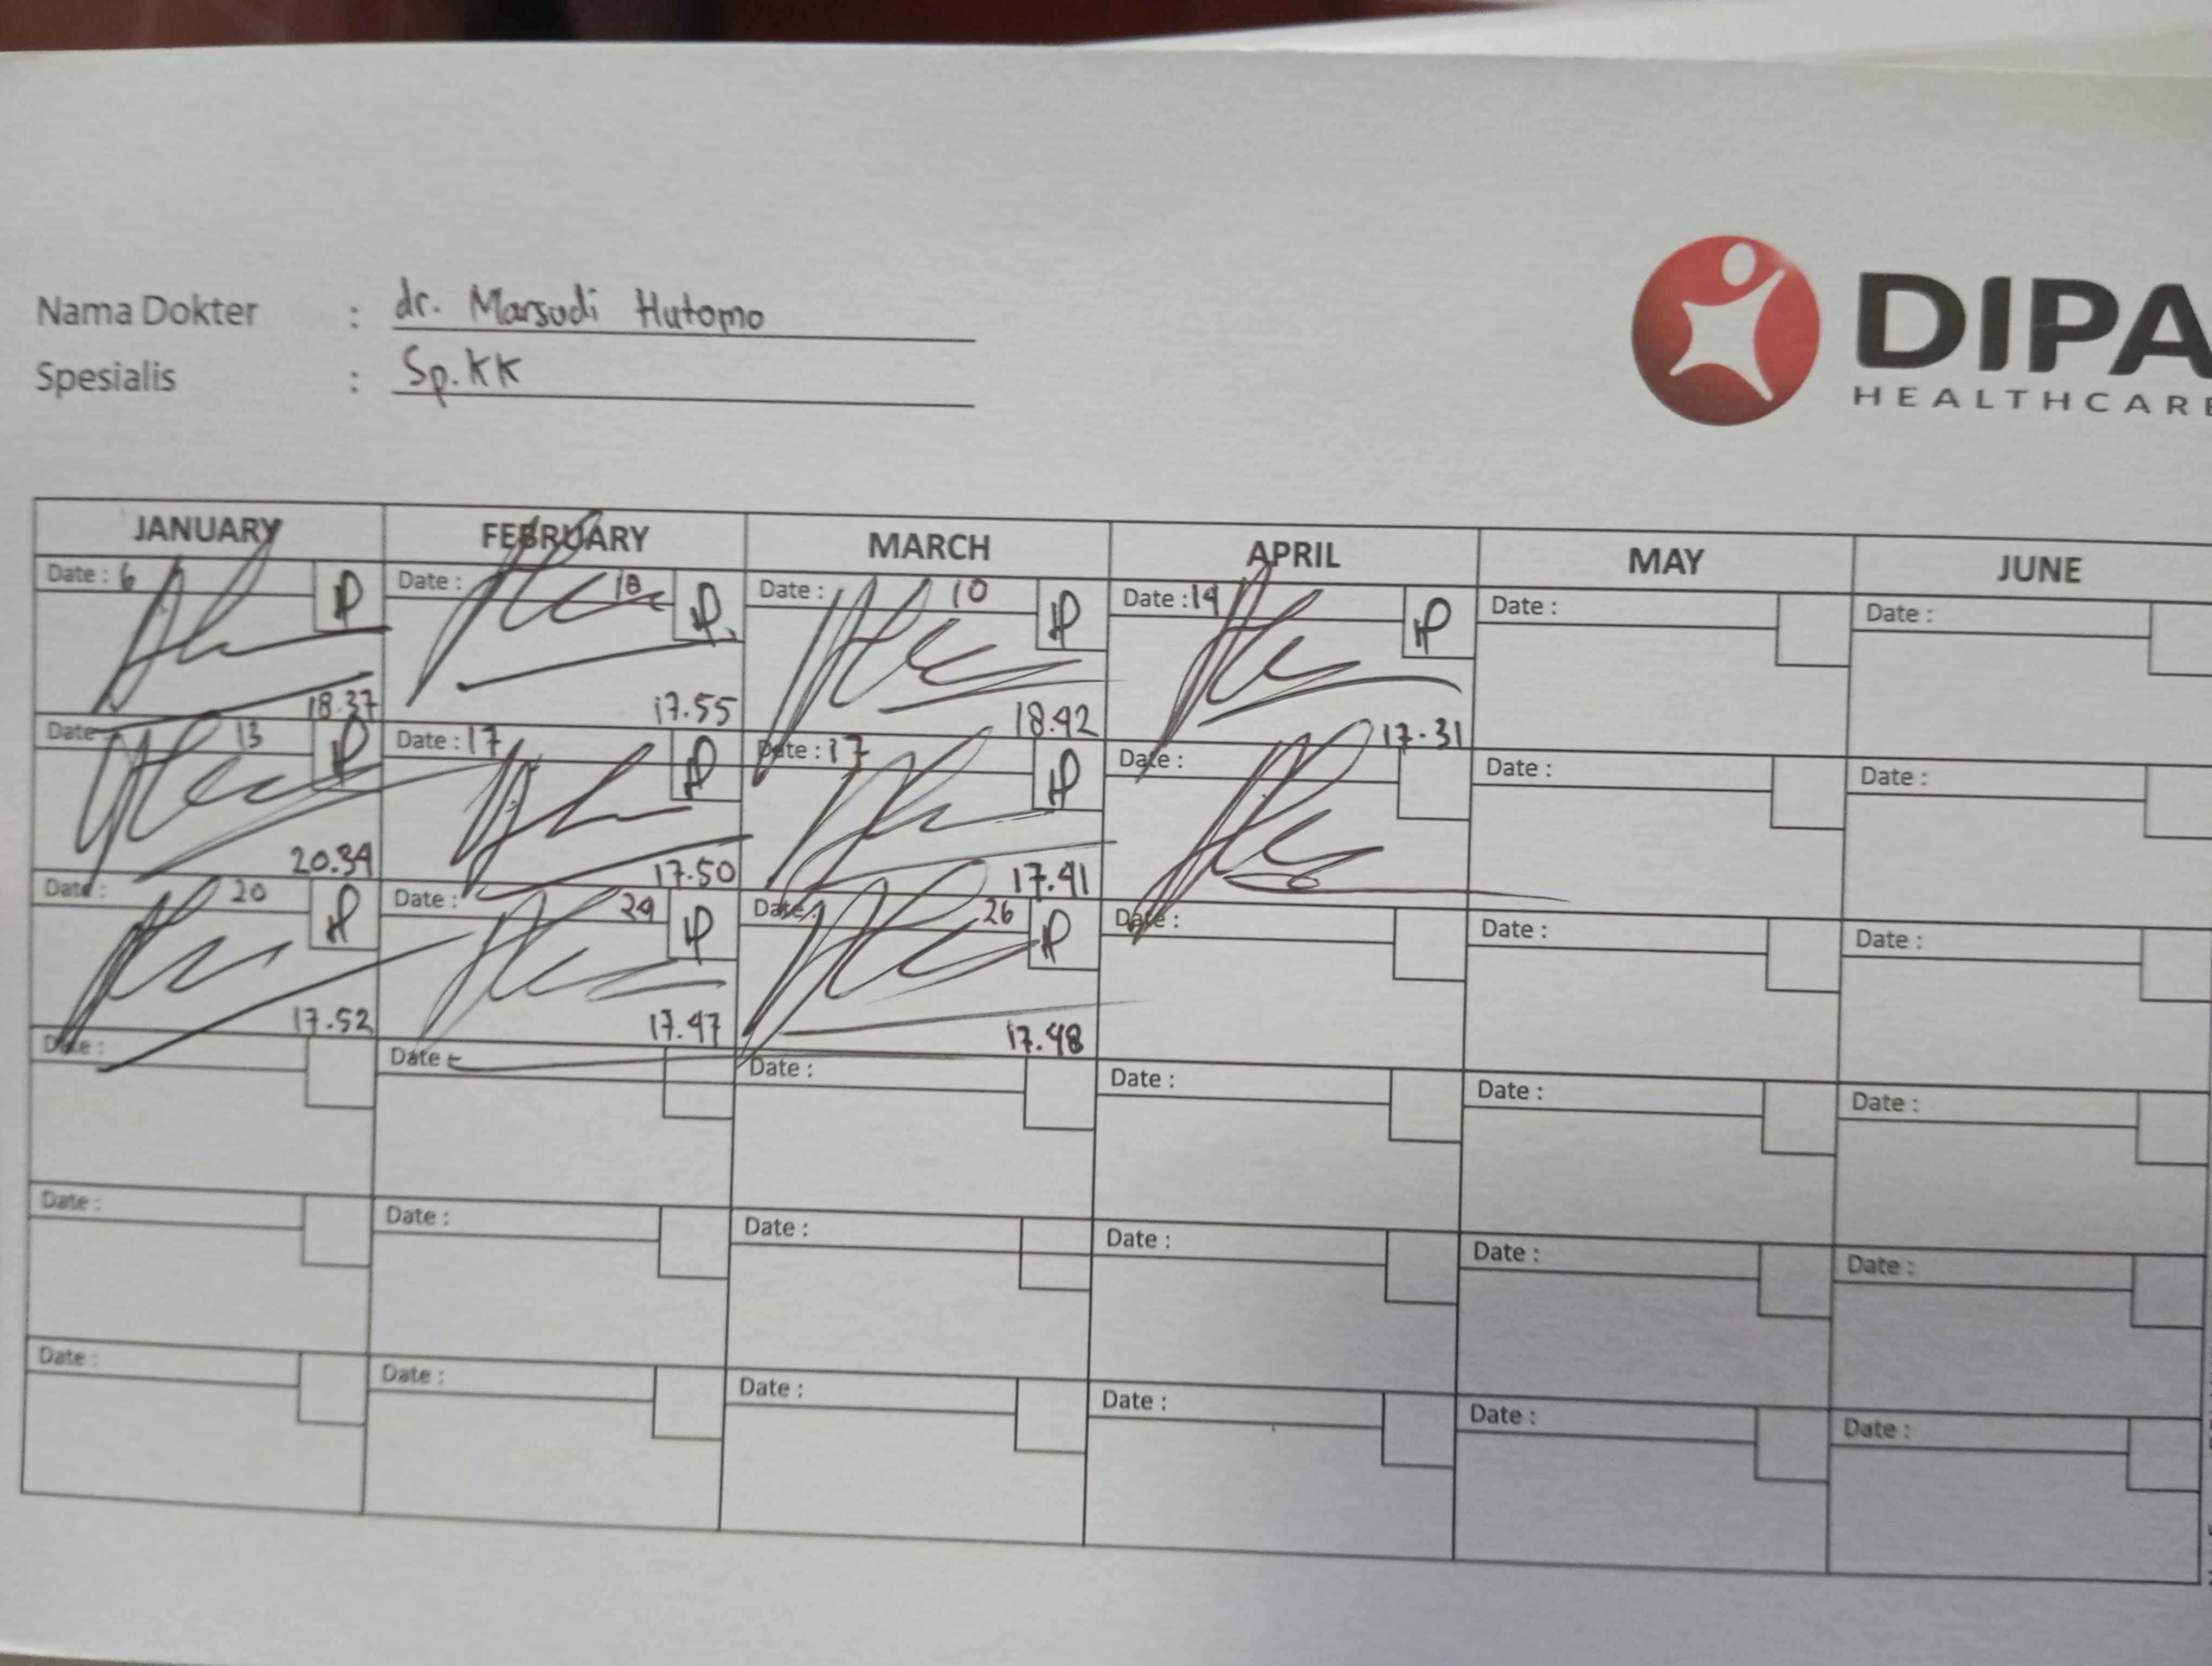 Nama Dokter : dr. Marsudi Hutomo
Spesialis : Sp.KK
DIPA
HEALTHCARE
JANUARY FEBRUARY MARCH APRIL MAY JUNE
Date : 6 Date : 10 Date : 10 Date : 14 Date : Date :
18.37 17.55 18.42 17.31
Date 13 Date : 17 Date : 17 Date : Date : Date :
20.34 17.50 17.41
Date : 20 Date : 24 Date : 26 Date : Date : Date :
17.52 17.47 17.48
Date : Date : Date : Date : Date : Date :
Date : Date : Date : Date : Date : Date :
Date : Date : Date : Date : Date : Date :